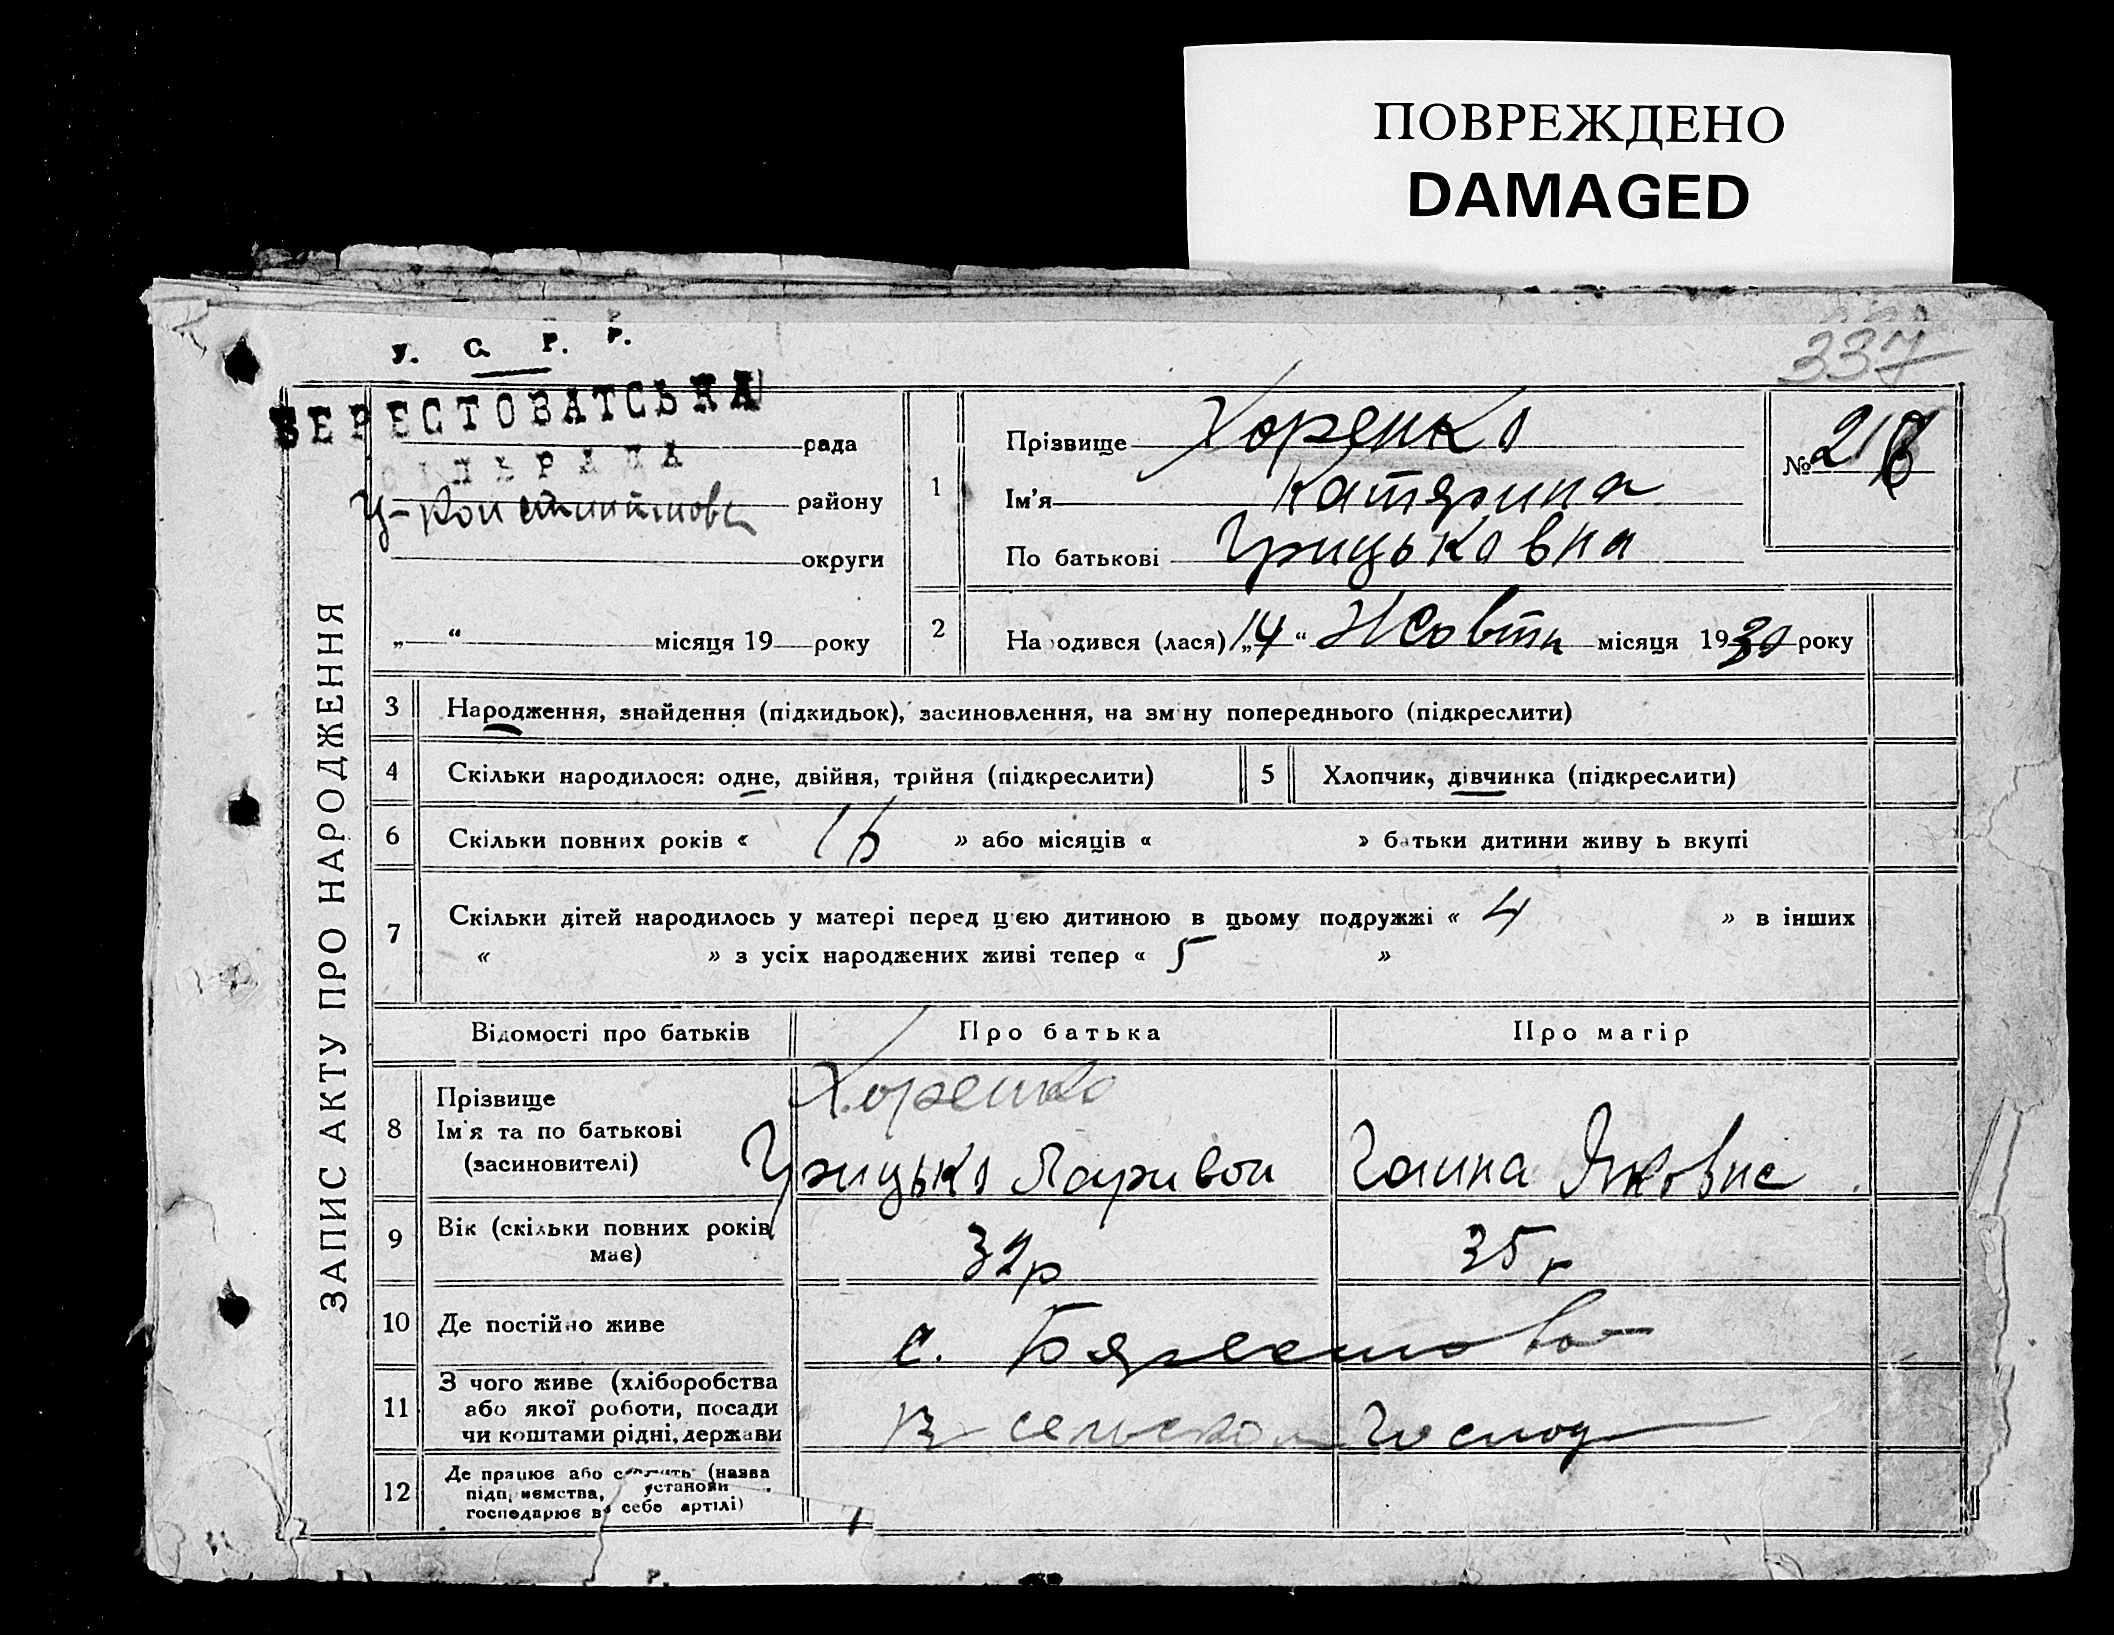 ПОВРЕЖДЕНО
DAMAGED
337
У. С. Р. Р.
БЕРЕСТОВАТСЬКА
рада
СІЛЬРАДА
району
округи
„ “ місяця 19 року
ЗАПИС АКТУ ПРО НАРОДЖЕННЯ
1
Прізвище Хоренко
Ім’я Катярина
По батькові Грицьковна
№
2
Народився (лася) „14“ Жовтн місяця 1930 року
3 Народження, знайдення (підкидьок), засиновлення, на зміну попереднього (підкреслити)
4 Скільки народилося: одне, двійня, трійня (підкреслити)
5 Хлопчик, дівчинка (підкреслити)
6 Скільки повних років « 16 » або місяців « » батьки дитини живуть вкупі
7 Скільки дітей народилось у матері перед цією дитиною в цьому подружжі « 4 » в інших
« » з усіх народжених живі тепер « 5 »
Відомості про батьків Про батька Про матір
8 Прізвище
Ім’я та по батькові
(засиновителі)
Хоренко
Грицько
Ганна Яковна
9 Вік (скільки повних років
має)
32р
35 р
10 Де постійно живе
с. Бярестова
11 З чого живе (хліборобства
або якої роботи, посади
чи коштами рідні, держави
В сельском Господ
12 Де працює або служить (назва
підприємства, установи
господарює в себе артілі)